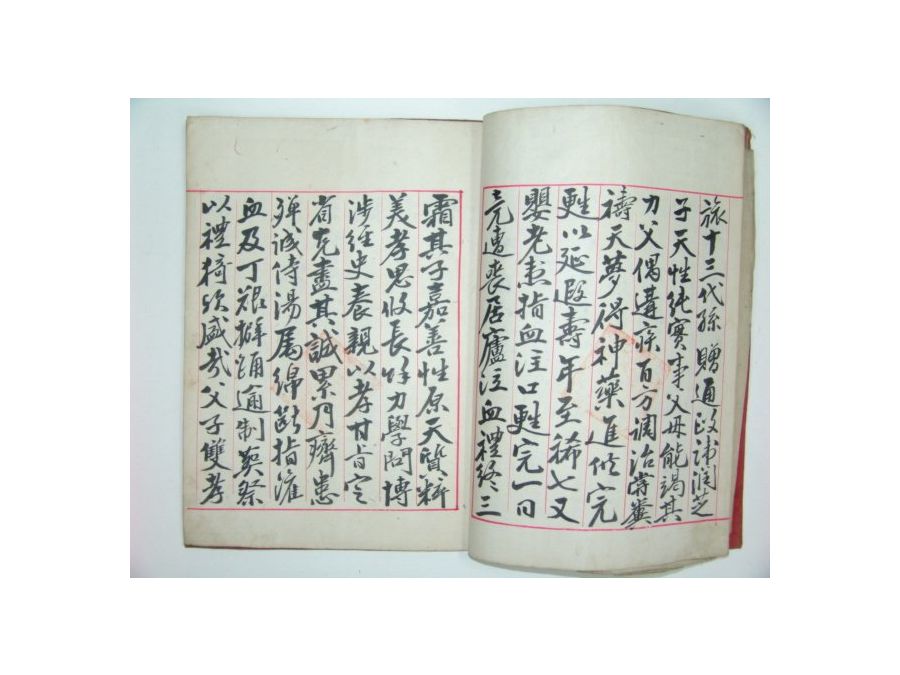 旅十三代孫 贈通政諱潤芝
子天性純實事父母能竭其
力父偶遘疾百方調治嘗糞
禱天夢得神藥進供完
甦以延遐壽年至稀七又
嬰老患指血注口甦完一日
竟遭喪居廬泣血禮終三
霜其子嘉善性原天質粹
美孝思攸長好力學問博
涉經史養親以孝甘旨定
省克盡其誠累月癠患
殫誠侍湯属纊斷指灌
血及丁艱擗踊逾制葬祭
以禮猗欤盛哉父子雙孝